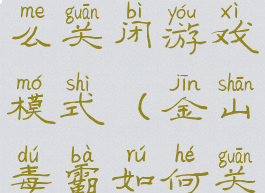 me guān bì yóu xì
么关闭游戏
mó shì jīn shān
模式（金山
dú bà rú hé guān
毒霸如何关